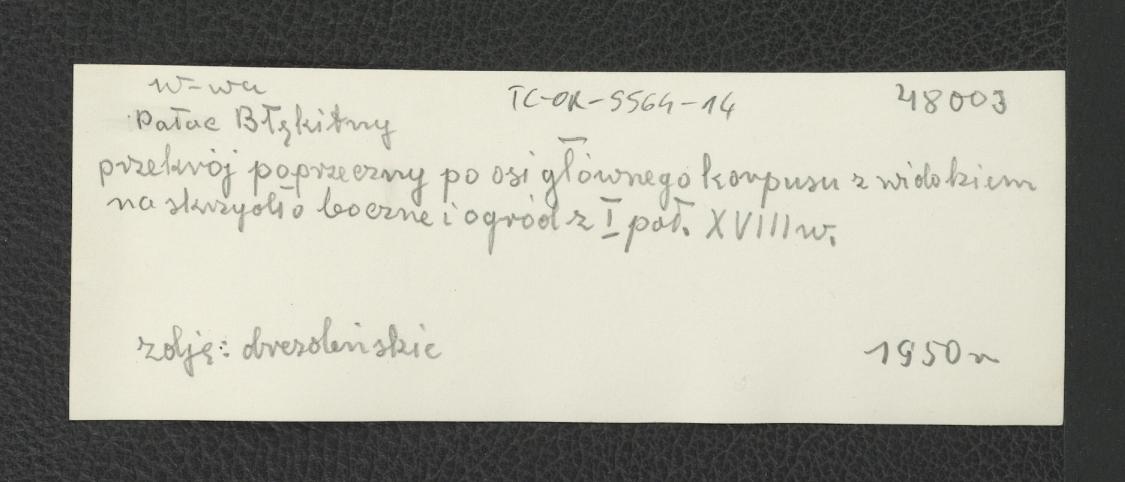 W-wa TC-OR-5564-14 48003
Pałac Błękitny
przekrój poprzeczny po osi głównego korpusu z widokiem
na skrzydło boczne i ogród z I poł. XVIII w.
zdję: drezdeńskie 1950 r